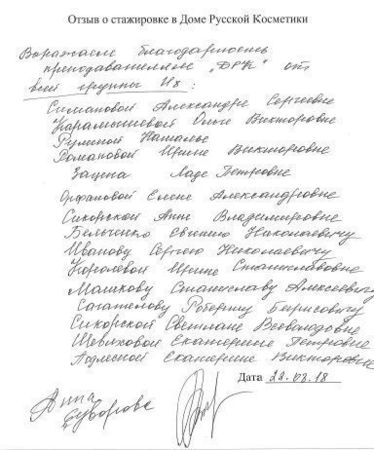 Отзыв о стажировке в Доме Русской Косметики
Выражаем благодарность
преподавателям „ДРК" от
всей группы Их:
Симановой Александре Сергеевне
Карамышевой Ольге Викторовне
Руминой Наталье
Романовой Ирине Викторовне
Зацепа Ладе Петровне
Орфановой Елене Александровне
Сикорской Анне Владимировне
Бельченко Евгению Николаевичу
Иванову Сергею Николаевичу
Королевой Ирине Станиславовне
Машкову Станиславу Алексеевичу
Сагателову Роберту Борисовичу
Сикорской Светлане Всеволодовне
Шевыховой Екатерине Петровне
Подлесной Екатерине Викторовне
Дата 28.03.18
Анна
Суворова